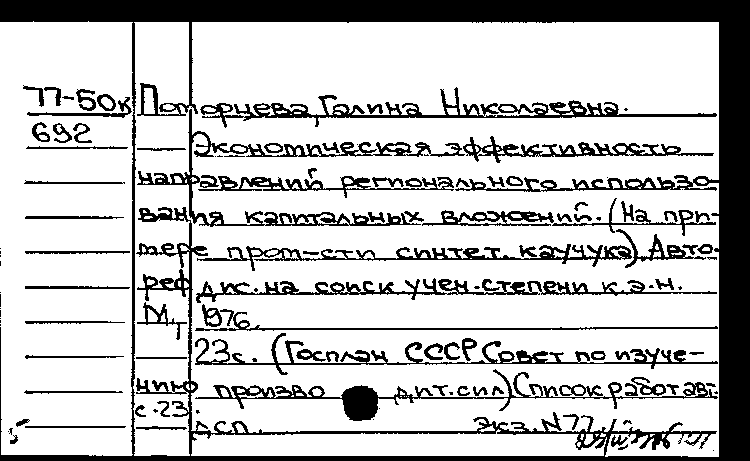 77-50к Поторцева, Галина Николаевна.
692 Экономическая эффективность
направлений регионального использо-
вания капитальных вложений. (На при-
мере пром-сти синтет. каучука). Авто-
реф дис. на соиск учен. степени к.э.н.
М., 1976.
23с. (Госплан СССР Совет по изуче-
нию произво дит. сил) Список работ авт.
с. 23.
ДСП. Экз. N 77.